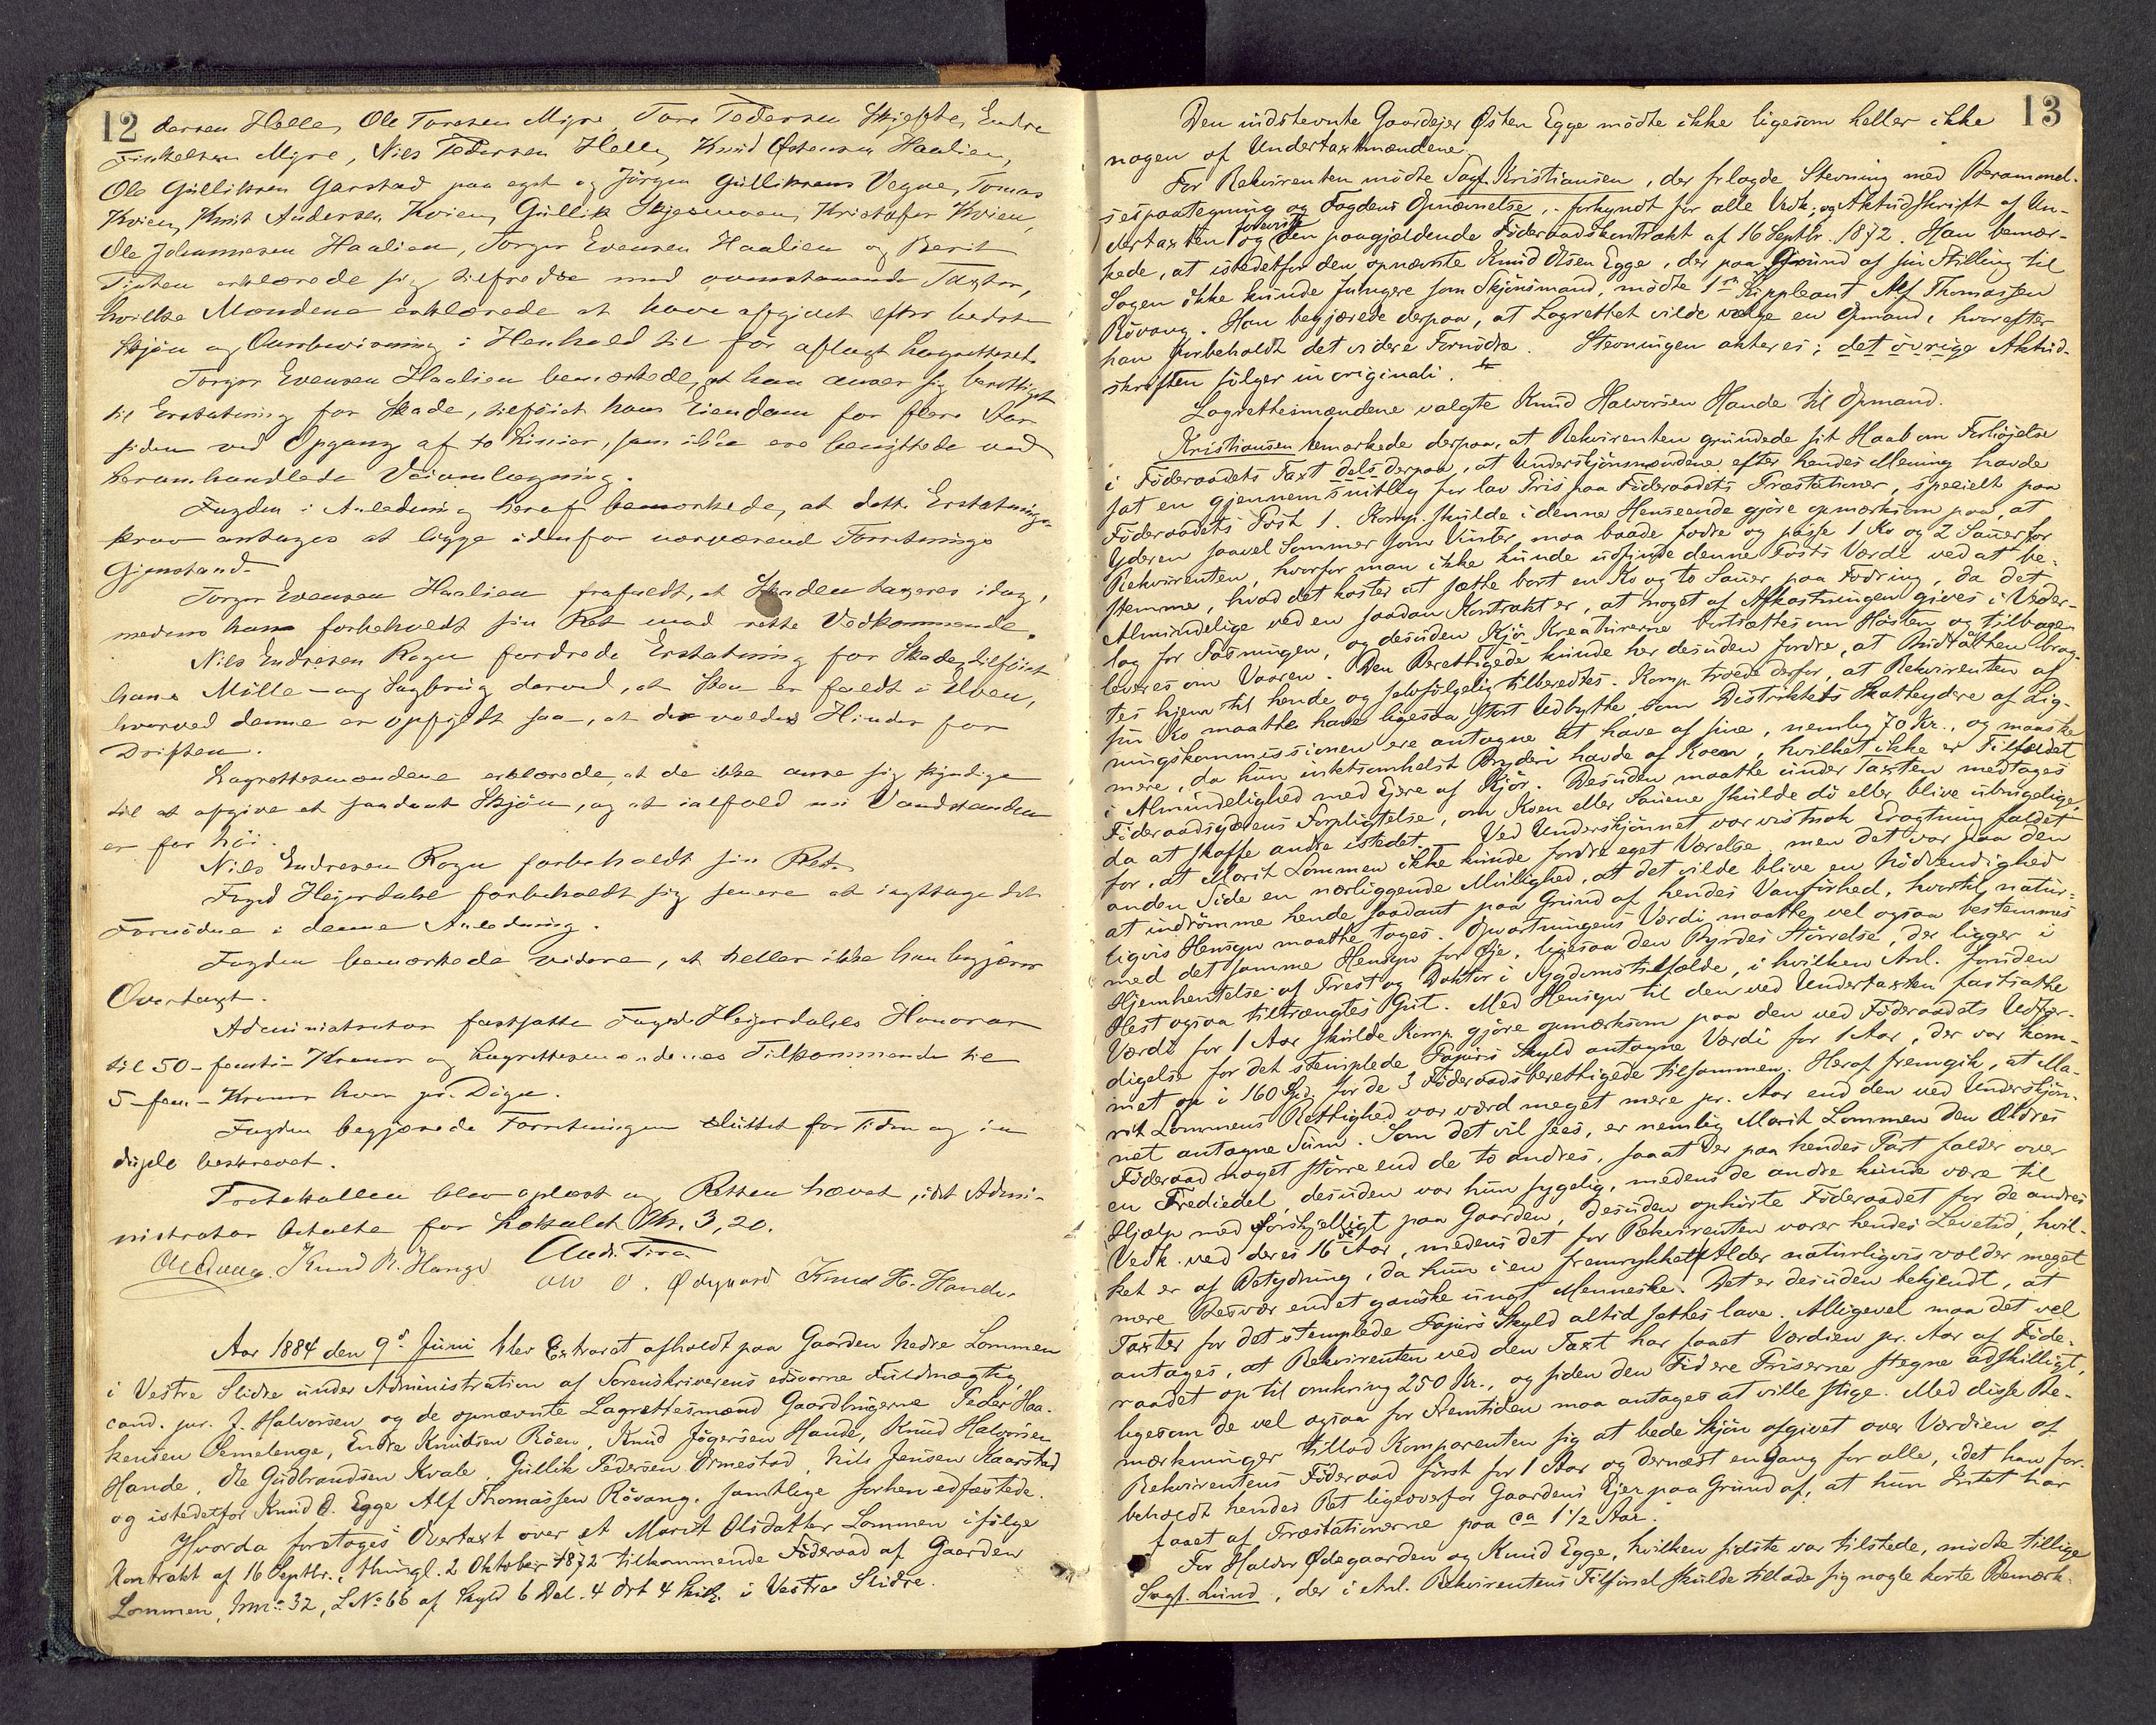 12
dersen Helle, Ole Toresen Myre, Tore Pedersen Skjefte, Endre
Finkelsen Myre, Nils Pedersen Helle, Knud Østensen Haalien,
Ole Gulliksen Garstad paa eget og Jörgen Gulliksens Vegne, Tomas
Kvien, Knut Andersen Kvien, Gullik Skjesmoen, Kristofer Kvien,
Ole Johannesen Haalien, Torger Evensen Haalien og Berit
erklærede sig tilfredse med ovenstaaende Taxter,
hvilke Mændene erklærede at have afgivet efter bedste
Skjön og Overbevisning i Henhold til för aflagt Lagretteseed.
Torger Evensen Haalien bemærkede, at han anser sig berettiget
til Erstatning for Skade, tilföiet hans Eiendom for flere Aar
siden ved Opgang af to Linier, som ikke ere benyttede ved
heromhandlede Veiomlægning.
Fogden i Anledning heraf bemærkede, at dette Erstatnings-
krav antages at ligge udenfor nærværende Forretnings
Gjenstand.
Torger Evensen Haalien frafaldt, at Skaden taxeres idag,
medens han forbeholdt sin Ret mod rette Vedkommende.
Nils Endresen Rogn fordrede Erstatning for Skade, tilföiet
hans Mölle- og Sagbrug derved, at Sten er faldt i Elven,
hvorved denne er opfyldt saa, at der voldes Hinder for
Driften.
Lagrettesmændene erklærede, at de ikke anse sig kyndige
til at afgive et saadant Skjön, og at ialfald nu Vandstanden
er for höi.
Nils Endresen Rogn forbeholdt sin Ret.
Foged Heyerdahl forbeholdt sig senere at iagttage det
Fornödne i denne Anledning.
Fogden bemærkede videre, at heller ikke han begjærer
Overtaxt.
Administrator fastsatte Foged Heyerdahls Honorar
til 50 - femti - Kroner og Lagrettesmændenes Tilkommende til
5 - fem - Kroner hver pr. Dag.
Fogden begjærede Forretningen sluttet for Tiden og in
duplo beskrevet.
Protokollen blev oplæst og Retten hævet, idet Admi-
nistrator betalte for Lokalet Kr. 3,20.
Knud K. Hange And: Fira
Ole O. Ødegaard Knud H. Hande.
Aar 1884 den 9de Juni blev Extraret afholdt paa Gaarden nedre Lommen
i Vestre Slidre under Administration af Sorenskriverens edsvorne Fuldmægtig,
cand. jur. J. Halvorsen og de opnævnte Lagrettesmænd Gaardbrugerne Peder Haa-
kensen Semelenge, Endre Knudsen Röen, Knud Jögersen Hande, Knud Halvorsen
Hande, Ole Gudbrandsen Kvale, Gullik Pedersen Ormestad, Nils Jensen Kaarstad
og istedetfor Knud O. Egge Alf Thomassen Rövang, samtlige forhen edfæstede.
Hvorda foretoges Overtaxt over et Marit Olsdatter Lommen ifölge
Kontrakt af 16 Septbr., thingl. 2 Oktober 1872 tilkommende Föderaad af Gaarden
Lommen, Mnr: 32, LNo 66 af Skyld 6 Dal. 4 Ort 4 Skill. i Vestre Slidre.
13
Den indstevnte Gaardejer Østen Egge mödte ikke ligesom heller ikke
nogen af Undertaxtmændene.
For Rekvirenten mödte Sagf. Kristiansen, der frlagde Stevning med Berammel-
sespaategning og Fogdens Opnævnelse, - forkyndt for alle Vedk., og Aktudskrift af Un-
dertaxten og foreviste den paagjældende Föderaadskontrakt af 16 Septbr. 1872. Han bemær-
kede, at istedetfor den opnævnte Knud Olsen Egge, der paa Grund af sin Stilling til
Sagen ikke kunde fungere som Skjönsmand, mödte 1ste Suppleant Alf Thomassen
Rövang. Han begjærede derpaa, at Lagrettet vilde vælge en Opmand, hvorefter
han forbeholdt det videre Fornödne. Stevningen akteres; det övrige Aktud-
skriften fölger in originali.
Lagrettesmændene valgte Knud Halvorsen Hande til Opmand.
Kristiansen bemærkede derpaa, at Rekvirenten grundede sit Haab om Forhöjelse
i Föderaadets Taxt dels derpaa, at Underskjönsmændene efter hendes Mening havde
sat en gjennemsnitlig for lav Pris paa Föderaadets Præstationer, specielt paa
Föderaadets Post 1. Komp. skulde i denne Henseende gjöre opmærksom paa, at
Yderen saavel Sommer som Vinter maa baade fodre og passe 1 Ko og 2 Sauer for
Rekvirenten, hvorfor man ikke kunde udfinde denne Posts Værdi ved at be-
stemme, hvad det koster at sætte bort en Ko og to Sauer paa Fodring, da det
Almindelige ved en saadan Kontrakt er, at noget af Afkastningen gives i Veder-
lag for Pasningen, og desuden Kjör Kreaturerne bortsættes om Hösten og tilbage-
leveres om Vaaren. Den Berettigede kunde her desuden fordre, at Budraatten brag-
tes hjem til hende og selvfölgelig tilberedtes. Komp. troede derfor, at Rekvirenten af
sin Ko maatte have ligesaa stort Udbytte som Distriktets Skatteydere af Lig-
ningskommissionen ere antagne at have af sine, nemlig 70 Kr., og maaske
mere, da hun intetsomhelst Bryderi havde af Koen, hvilket ikke er Tilfældet
i Almindelighed med Ejere af Kjör. Desuden maatte under Taxten medtages
Föderaadsyderens Forpligtelse, om Koen eller Sauene skulde dö eller blive ubrugelige,
da at skaffe andre istedet. Ved Underskjönnet var vistnok Eragtning faldet
for, at Marit Lommen ikke kunde fordre eget Værelse, men det var paa den
anden Side en nærliggende Mulighed, at det vilde blive en Nödvendighed
at indrömme hende saadant paa Grund af hendes Vanförhed, hvortil natur-
ligvis Hensyn maatte tages. Opvartningens Værdi maatte vel ogsaa bestemmes
med det samme Hensyn for Øje, ligesaa den Byrdes Störrelse, der ligger i
Hjemhentelse af Prest og Doktor i Sygdomstilfælde, i hvilken Anl. foruden
Hest ogsaa tiltrængtes Gut. Med Hensyn til den ved Undertaxten fastsatte
Værdi for 1 Aar skulde Komp. gjöre opmærksom paa den ved Föderaadets Udfær-
digelse for det stemplede Papirs Skyld antagne Værdi for 1 Aar, der var kom-
met op i 160 Spd. for de 3 Föderaadsberettigede tilsammen. Heraf fremgik, at Ma-
rit Lommens Rettighed var værd meget mere pr. Aar end den ved Underskjön-
net antagne Sum. Som det vil sees, er nemlig Marit Lommen den Ældres
Föderaad noget större end de to andres, saaat der paa hendes Part falder over
en Trediedel, desuden var hun sygelig, medens de andre kunde være til
Hjælp med Forskjelligt paa Gaarden, desuden ophörte Föderaadet for de andres
Vedk. ved deres 16de Aar, medens det for Rekvirenten varer hendes Levetid, hvil-
ket er af Betydning, da hun i en fremrykket Alder naturligvis volder meget
mere Besvær end et ganske ungt Menneske. Det er desuden bekjendt, at
Taxter for det stemplede Papirs Skyld altid sættes lave. Alligevel maa det vel
antages, at Rekvirenten ved den Taxt har faaet Værdien pr. Aar af Föde-
raadet op til omkring 250 Kr., og siden den Tid ere Priserne stegne adskilligt,
ligesom de vel ogsaa for Fremtiden maa antages at ville stige. Med disse Be-
mærkninger tillod Komparenten sig at bede Skjön afgivet over Værdien af
Rekvirentens Föderaad först for 1 Aar og dernæst engang for alle, idet han for-
beholdt hendes Ret ligeoverfor Gaardens Ejer paa Grund af, at hun Intet har
faaet af Præstationerne paa ca 1 1/2 Aar.
For Haldor Ødegaarden og Knud Egge, hvilken sidste var tilstede, mödte tillige
Sagf. Lund, der i Anl. Rekvirentens Tilförsel skulde tillade sig nogle korte Bemærk-